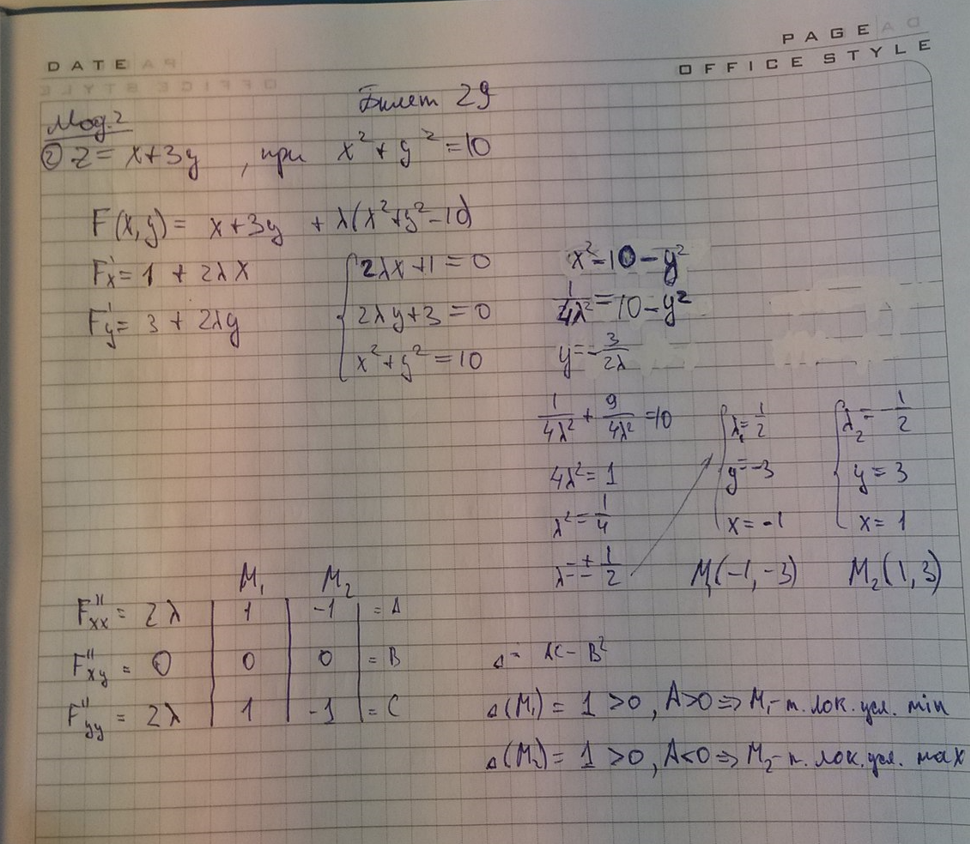 PAGE
OFFICE STYLE
DATE
Билет 29
Мод.2
② z = x+3y , при x² + y² = 10
F(x,y) = x+3y + λ(x²+y²-10)
F'x = 1 + 2λx
F'y = 3 + 2λy
{ 2λx+1 = 0
2λy+3 = 0
x²+y² = 10
x² = 10 - y²
1/4λ² = 10 - y²
y = -3/2λ
1/4λ² + 9/4λ² = 10
4λ² = 1
λ² = 1/4
λ = ± 1/2
{ λ₁ = 1/2
y = -3
x = -1
M₁(-1,-3)
{ λ₂ = -1/2
y = 3
x = 1
M₂(1,3)
M₁ M₂
F''xx = 2λ | 1 | -1 | = A
F''xy = 0 | 0 | 0 | = B
F''yy = 2λ | 1 | -1 | = C
Δ = AC - B²
Δ(M₁) = 1 >0, A>0 ⇒ M₁ - т. лок. усл. min
Δ(M₂) = 1 >0, A<0 ⇒ M₂ - т. лок. усл. max